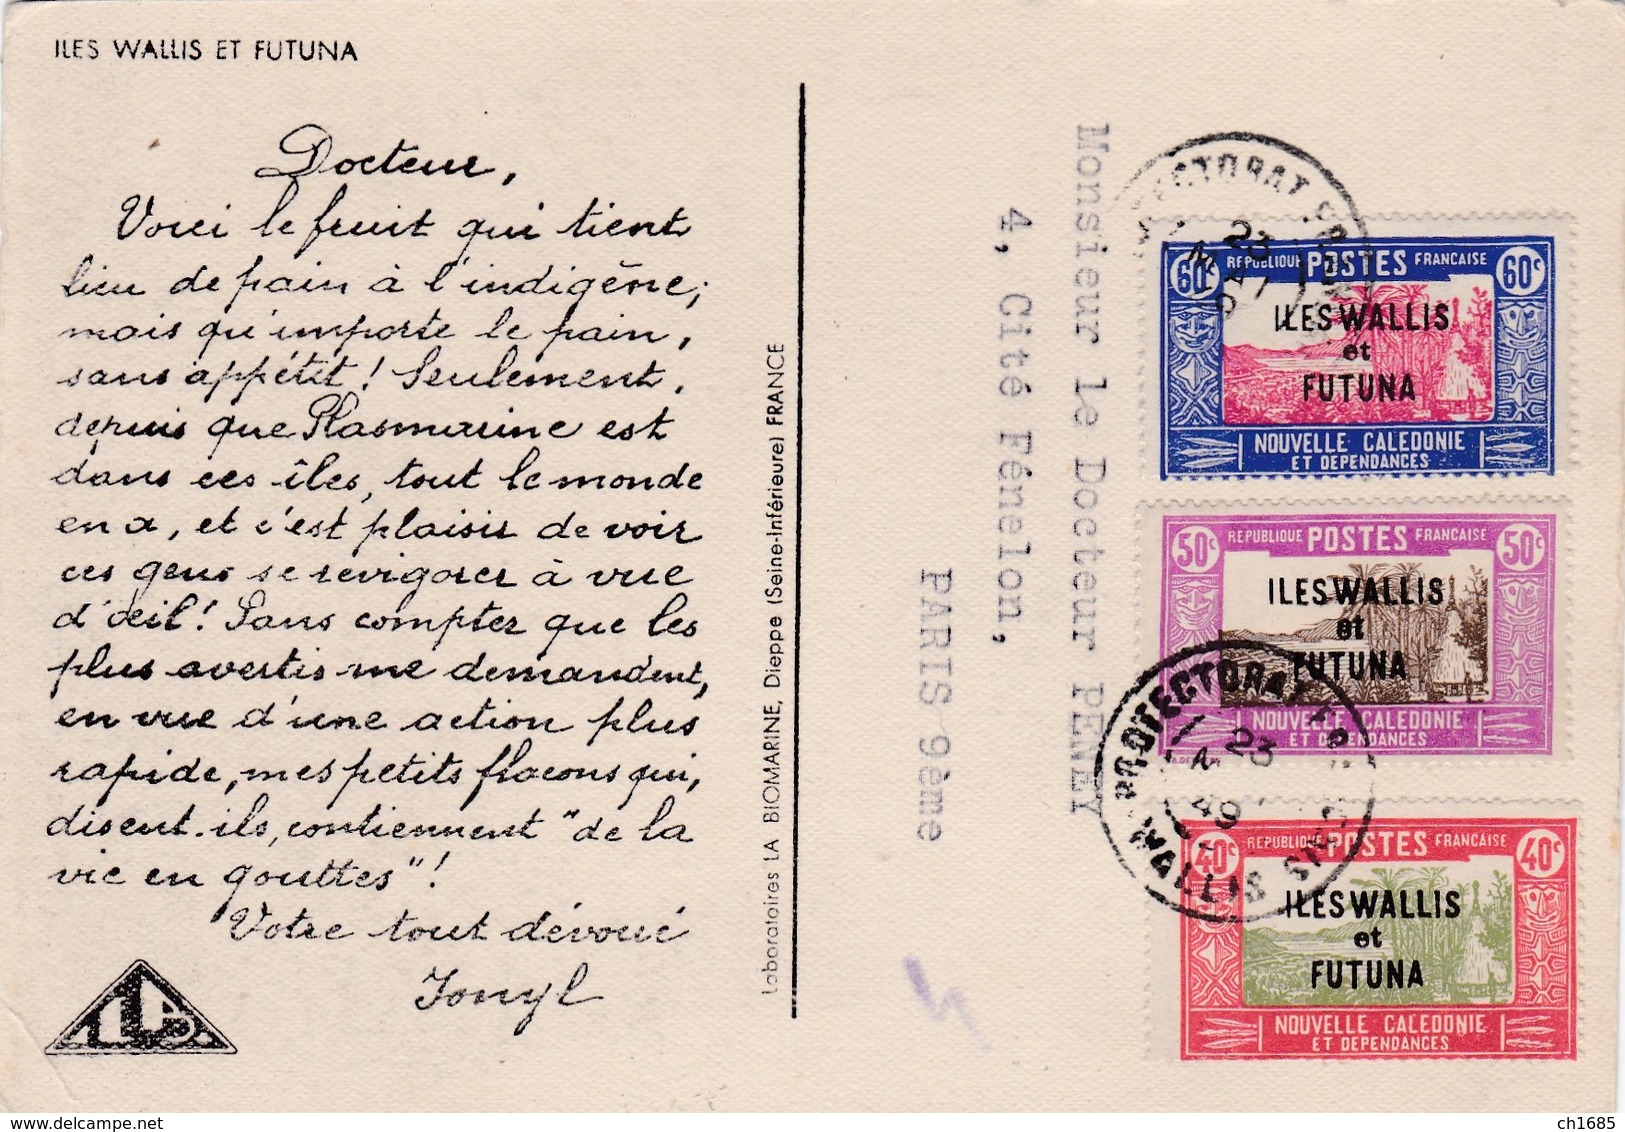 ILES WALLIS ET FUTUNA
Docteur,
Voici le fruit qui tient
lieu de pain à l'indigène;
mais qu'importe le pain,
sans appétit! Seulement,
depuis que Plasmarine est
dans ces îles, tout le monde
en a, et c'est plaisir de voir
ces gens se revigorer à vue
d'œil! Sans compter que les
plus avertis me demandent,
en vue d'une action plus
rapide, mes petits flacons qui,
disent-ils, contiennent "de la
vie en gouttes"!
Votre tout dévoué
Ionyl
Laboratoires LA BIOMARINE, Dieppe (Seine-Inférieure) FRANCE
Monsieur le Docteur PENEY
4, Cité Fénelon,
PARIS 9ème
60c REPUBLIQUE POSTES FRANÇAISE 60c
ILES WALLIS
et
FUTUNA
NOUVELLE CALEDONIE
ET DEPENDANCES
50c REPUBLIQUE POSTES FRANÇAISE 50c
ILES WALLIS
et
FUTUNA
NOUVELLE CALEDONIE
ET DEPENDANCES
PROTECTORAT
23
WALLIS
40c REPUBLIQUE POSTES FRANÇAISE 40c
ILES WALLIS
et
FUTUNA
NOUVELLE CALEDONIE
ET DEPENDANCES
delcampe.net
ch1685